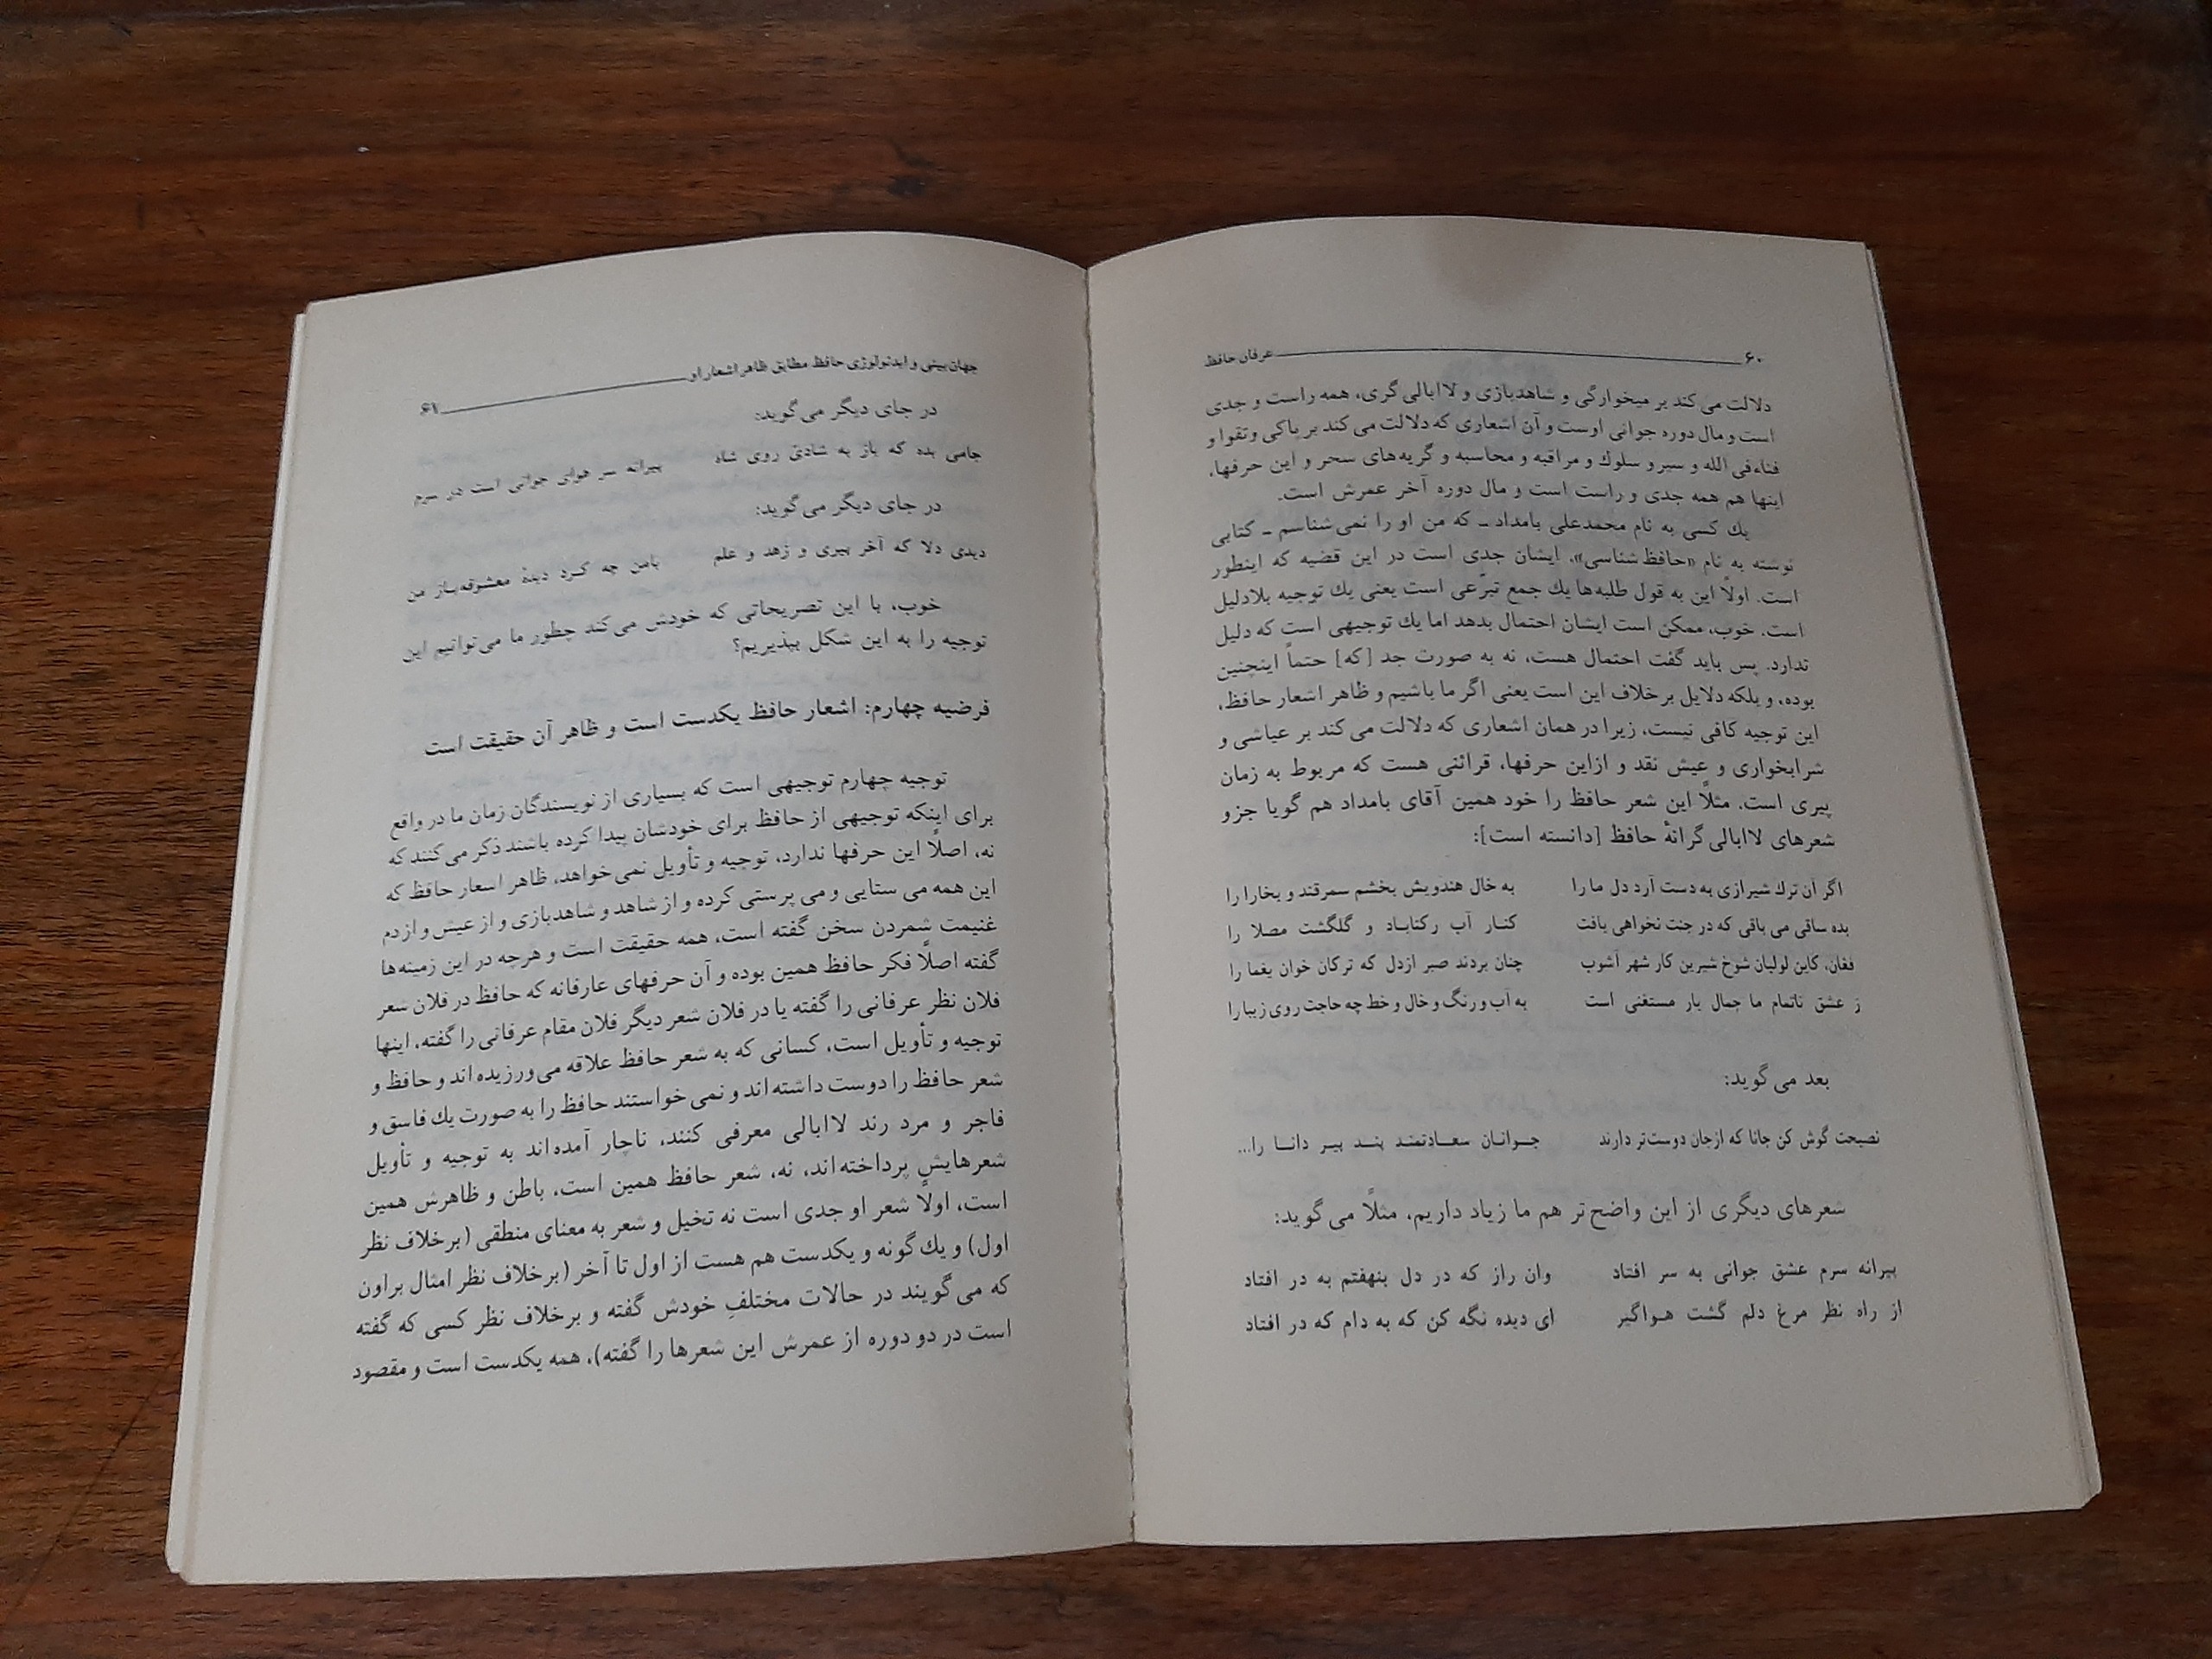 ۶۰ عرفان حافظ
دلالت می‌کند بر میخوارگی و شاهدبازی و لاابالی گری، همه راست و جدی
است و مال دوره جوانی اوست و آن اشعاری که دلالت می‌کند بر پاکی و تقوا و
فناءفی الله و سیر و سلوك و مراقبه و محاسبه و گریه‌های سحر و این حرفها،
اینها هم همه جدی و راست است و مال دوره آخر عمرش است.
یك کسی به نام محمدعلی بامداد ـ که من او را نمی‌شناسم ـ کتابی
نوشته به نام «حافظ شناسی»، ایشان جدی است در این قضیه که اینطور
است. اولاً این به قول طلبه‌ها یك جمع تبرّعی است یعنی یك توجیه بلادلیل
است. خوب، ممکن است ایشان احتمال بدهد اما یك توجیهی است که دلیل
ندارد. پس باید گفت احتمال هست، نه به صورت جد [که] حتماً اینچنین
بوده، و بلکه دلایل برخلاف این است یعنی اگر ما باشیم و ظاهر اشعار حافظ،
این توجیه کافی نیست، زیرا در همان اشعاری که دلالت می‌کند بر عیاشی و
شرابخواری و عیش نقد و ازاین حرفها، قرائنی هست که مربوط به زمان
پیری است. مثلاً این شعر حافظ را خود همین آقای بامداد هم گویا جزو
شعرهای لاابالی گرانهٔ حافظ [دانسته است]:
اگر آن ترك شیرازی به دست آرد دل ما را به خال هندویش بخشم سمرقند و بخارا را
بده ساقی می باقی که در جنت نخواهی یافت کنار آب رکناباد و گلگشت مصلا را
فغان، کاین لولیان شوخ شیرین کار شهر آشوب چنان بردند صبر ازدل که ترکان خوان یغما را
ز عشق ناتمام ما جمال یار مستغنی است به آب و رنگ و خال و خط چه حاجت روی زیبا را
بعد می‌گوید:
نصیحت گوش کن جانا که ازجان دوست‌تر دارند جوانان سعادتمند پند پیر دانا را...
شعرهای دیگری از این واضح‌تر هم ما زیاد داریم، مثلاً می‌گوید:
پیرانه سرم عشق جوانی به سر افتاد وان راز که در دل بنهفتم به در افتاد
از راه نظر مرغ دلم گشت هواگیر ای دیده نگه کن که به دام که در افتاد
جهان‌بینی و ایدئولوژی حافظ مطابق ظاهر اشعار او ۶۱
در جای دیگر می‌گوید:
جامی بده که باز به شادیّ روی شاه پیرانه سر هوای جوانی است در سرم
در جای دیگر می‌گوید:
دیدی دلا که آخر پیری و زهد و علم بامن چه کرد دیدهٔ معشوقه‌باز من
خوب، با این تصریحاتی که خودش می‌کند چطور ما می‌توانیم این
توجیه را به این شکل بپذیریم؟
فرضیه چهارم: اشعار حافظ یکدست است و ظاهر آن حقیقت است
توجیه چهارم توجیهی است که بسیاری از نویسندگان زمان ما در واقع
برای اینکه توجیهی از حافظ برای خودشان پیدا کرده باشند ذکر می‌کنند که
نه، اصلاً این حرفها ندارد، توجیه و تأویل نمی‌خواهد، ظاهر اسعار حافظ که
این همه می ستایی و می پرستی کرده و از شاهد و شاهدبازی و از عیش و از دم
غنیمت شمردن سخن گفته است، همه حقیقت است و هرچه در این زمینه‌ها
گفته اصلاً فکر حافظ همین بوده و آن حرفهای عارفانه که حافظ در فلان شعر
فلان نظر عرفانی را گفته یا در فلان شعر دیگر فلان مقام عرفانی را گفته، اینها
توجیه و تأویل است، کسانی که به شعر حافظ علاقه می‌ورزیده‌اند و حافظ و
شعر حافظ را دوست داشته‌اند و نمی‌خواستند حافظ را به صورت یك فاسق و
فاجر و مرد رند لاابالی معرفی کنند، ناچار آمده‌اند به توجیه و تأویل
شعرهایش پرداخته‌اند، نه، شعر حافظ همین است، باطن و ظاهرش همین
است، اولاً شعر او جدی است نه تخیل و شعر به معنای منطقی (برخلاف نظر
اول) و یك گونه و یکدست هم هست از اول تا آخر (برخلاف نظر امثال براون
که می‌گویند در حالات مختلفِ خودش گفته و برخلاف نظر کسی که گفته
است در دو دوره از عمرش این شعرها را گفته)، همه یکدست است و مقصود